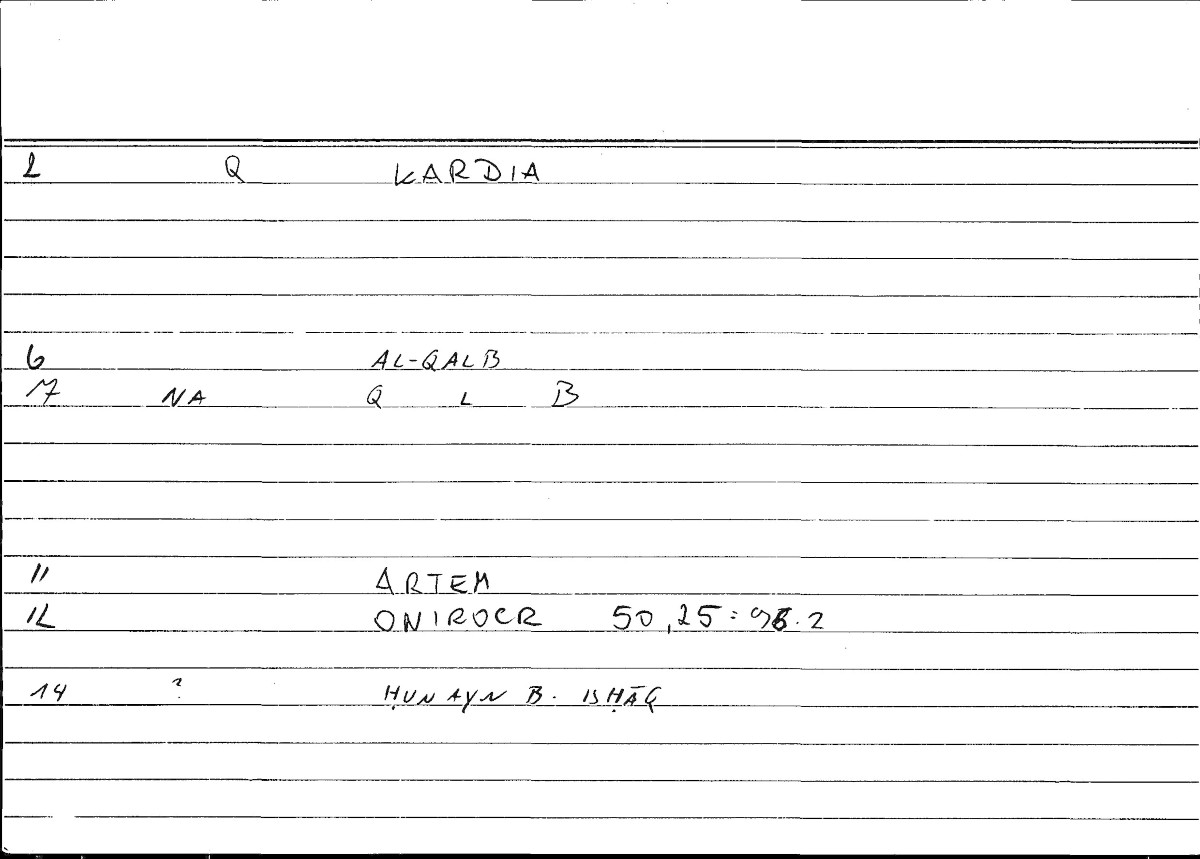 2 Q KARDIA
6 AL-QALB
7 NA Q L B
11 ARTEM
12 ONIROCR 50,25 : 96.2
14 ? ḤUNAYN B. ISḤĀQ